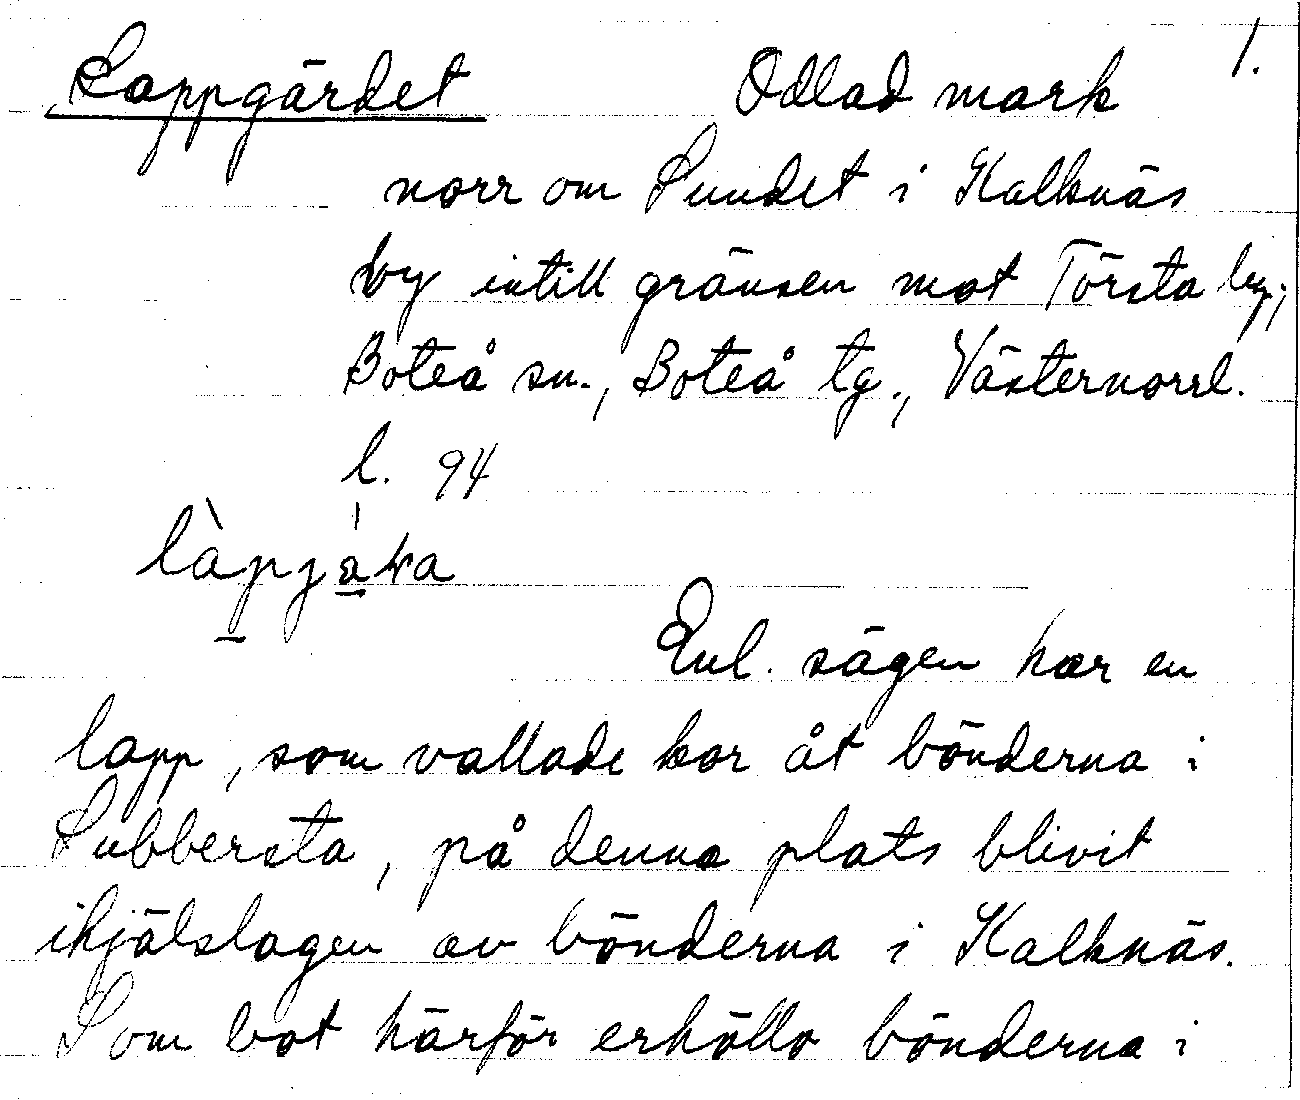 Lappgärdet Odlad mark 1.
norr om Sundet i Kalknäs
by intill gränsen mot Törsta by,
Boteå sn., Boteå tg., Västernorrl.
l. 94
Enl. sägen har en
lapp, som vallade kor åt bönderna i
Subbersta, på denna plats blivit
ihjälslagen av bönderna i Kalknäs.
Som bot härför erhöllo bönderna i